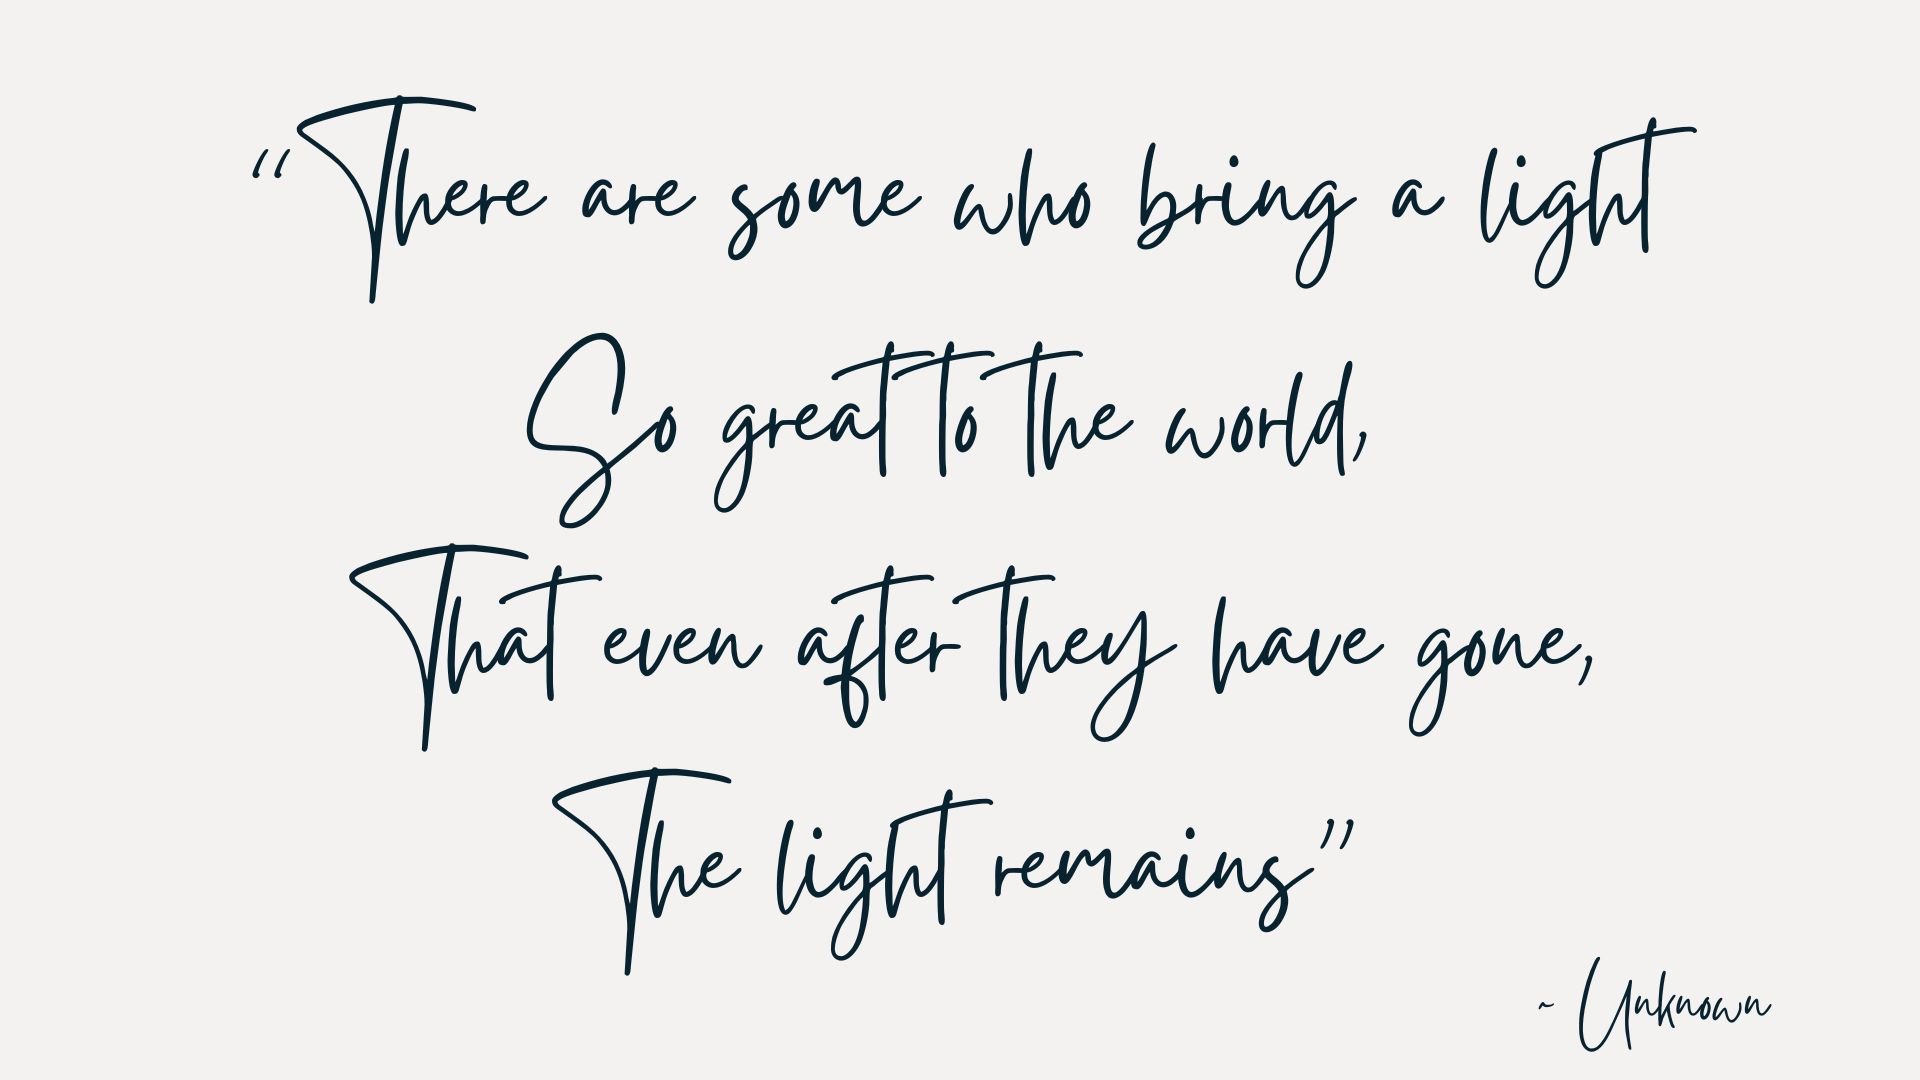 “There are some who bring a light
So great to the world,
That even after they have gone,
The light remains”
~ Unknown